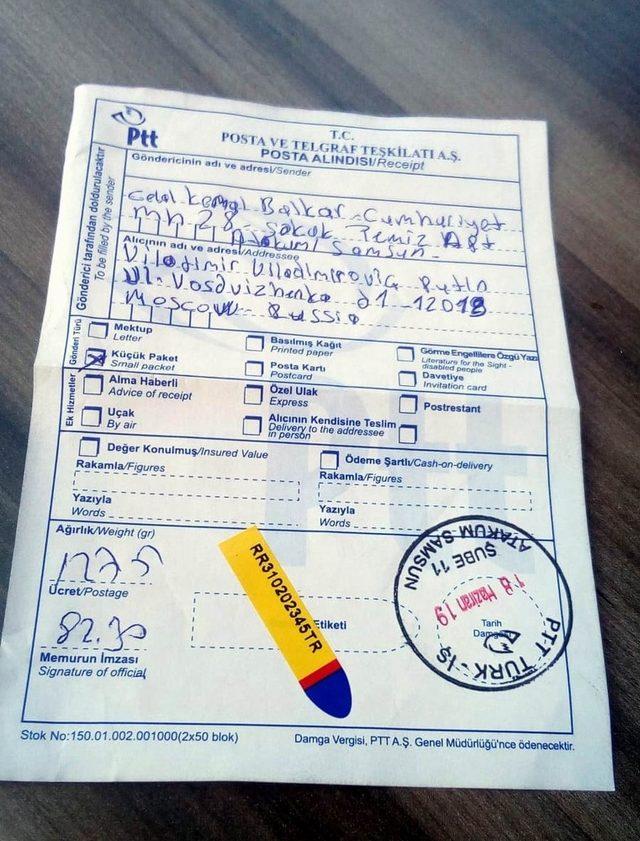 Ptt
T.C.
POSTA VE TELGRAF TEŞKİLATI A.Ş.
POSTA ALINDISI/Receipt
Gönderici tarafından doldurulacaktır
To be filled by the sender
Göndericinin adı ve adresi/Sender
Balkar Cumhuriyet
Mh 28. Sokak Temiz Apt
Atakum/Samsun
Alıcının adı ve adresi/Addressee
Viladimir Viladimirovic Putin
Ul. Vosdvizhenka 12018
Moscow Russia
Gönderi Türü
Mektup
Letter
Küçük Paket
Small packet
Basılmış Kağıt
Printed paper
Posta Kartı
Postcard
Görme Engellilere Özgü Yazı
Literature for the Sight-
disabled people
Davetiye
Invitation card
Ek Hizmetler
Alma Haberli
Advice of receipt
Uçak
By air
Özel Ulak
Express
Alıcının Kendisine Teslim
Delivery to the addressee
in person
Postrestant
Değer Konulmuş/Insured Value
Rakamla/Figures
Yazıyla
Words
Ödeme Şartlı/Cash-on-delivery
Rakamla/Figures
Yazıyla
Words
Ağırlık/Weight (gr)
1225
Ücret/Postage
82.30
Memurun İmzası
Signature of official
RR310202345TR
Etiketi
ATAKUM SAMSUN
ŞUBE 11
18 Haziran 19
Tarih
PTT TÜRK-İŞ
Stok No:150.01.002.001000(2x50 blok)
Damga Vergisi, PTT A.Ş. Genel Müdürlüğü'nce ödenecektir.